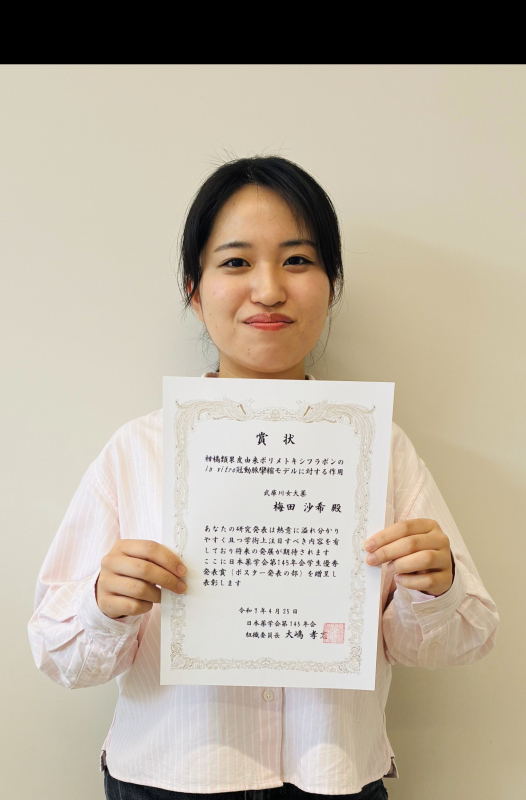 賞状
柑橘類果皮由来ポリメトキシフラボンの
in vitro冠動脈攣縮モデルに対する作用
武庫川女大薬
梅田 沙希 殿
あなたの研究発表は熱意に溢れ分かり
やすく且つ学術上注目すべき内容を有
しており将来の発展が期待されます
ここに日本薬学会第145年会学生優秀
発表賞(ポスター発表の部)を贈呈し
表彰します
令和7年4月25日
日本薬学会第145年会
組織委員長 大嶋 孝志